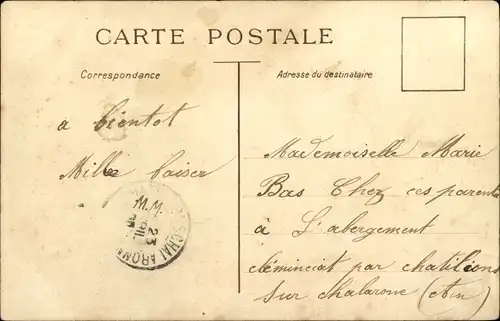 CARTE POSTALE
Correspondance
Adresse du destinataire
a bientot
Mille baiser
Mademoiselle Marie
Bas Chez ces parents
à L'abergement
cléminciat par chatilions
sur chalarone (Ain)
CHALARONN
23